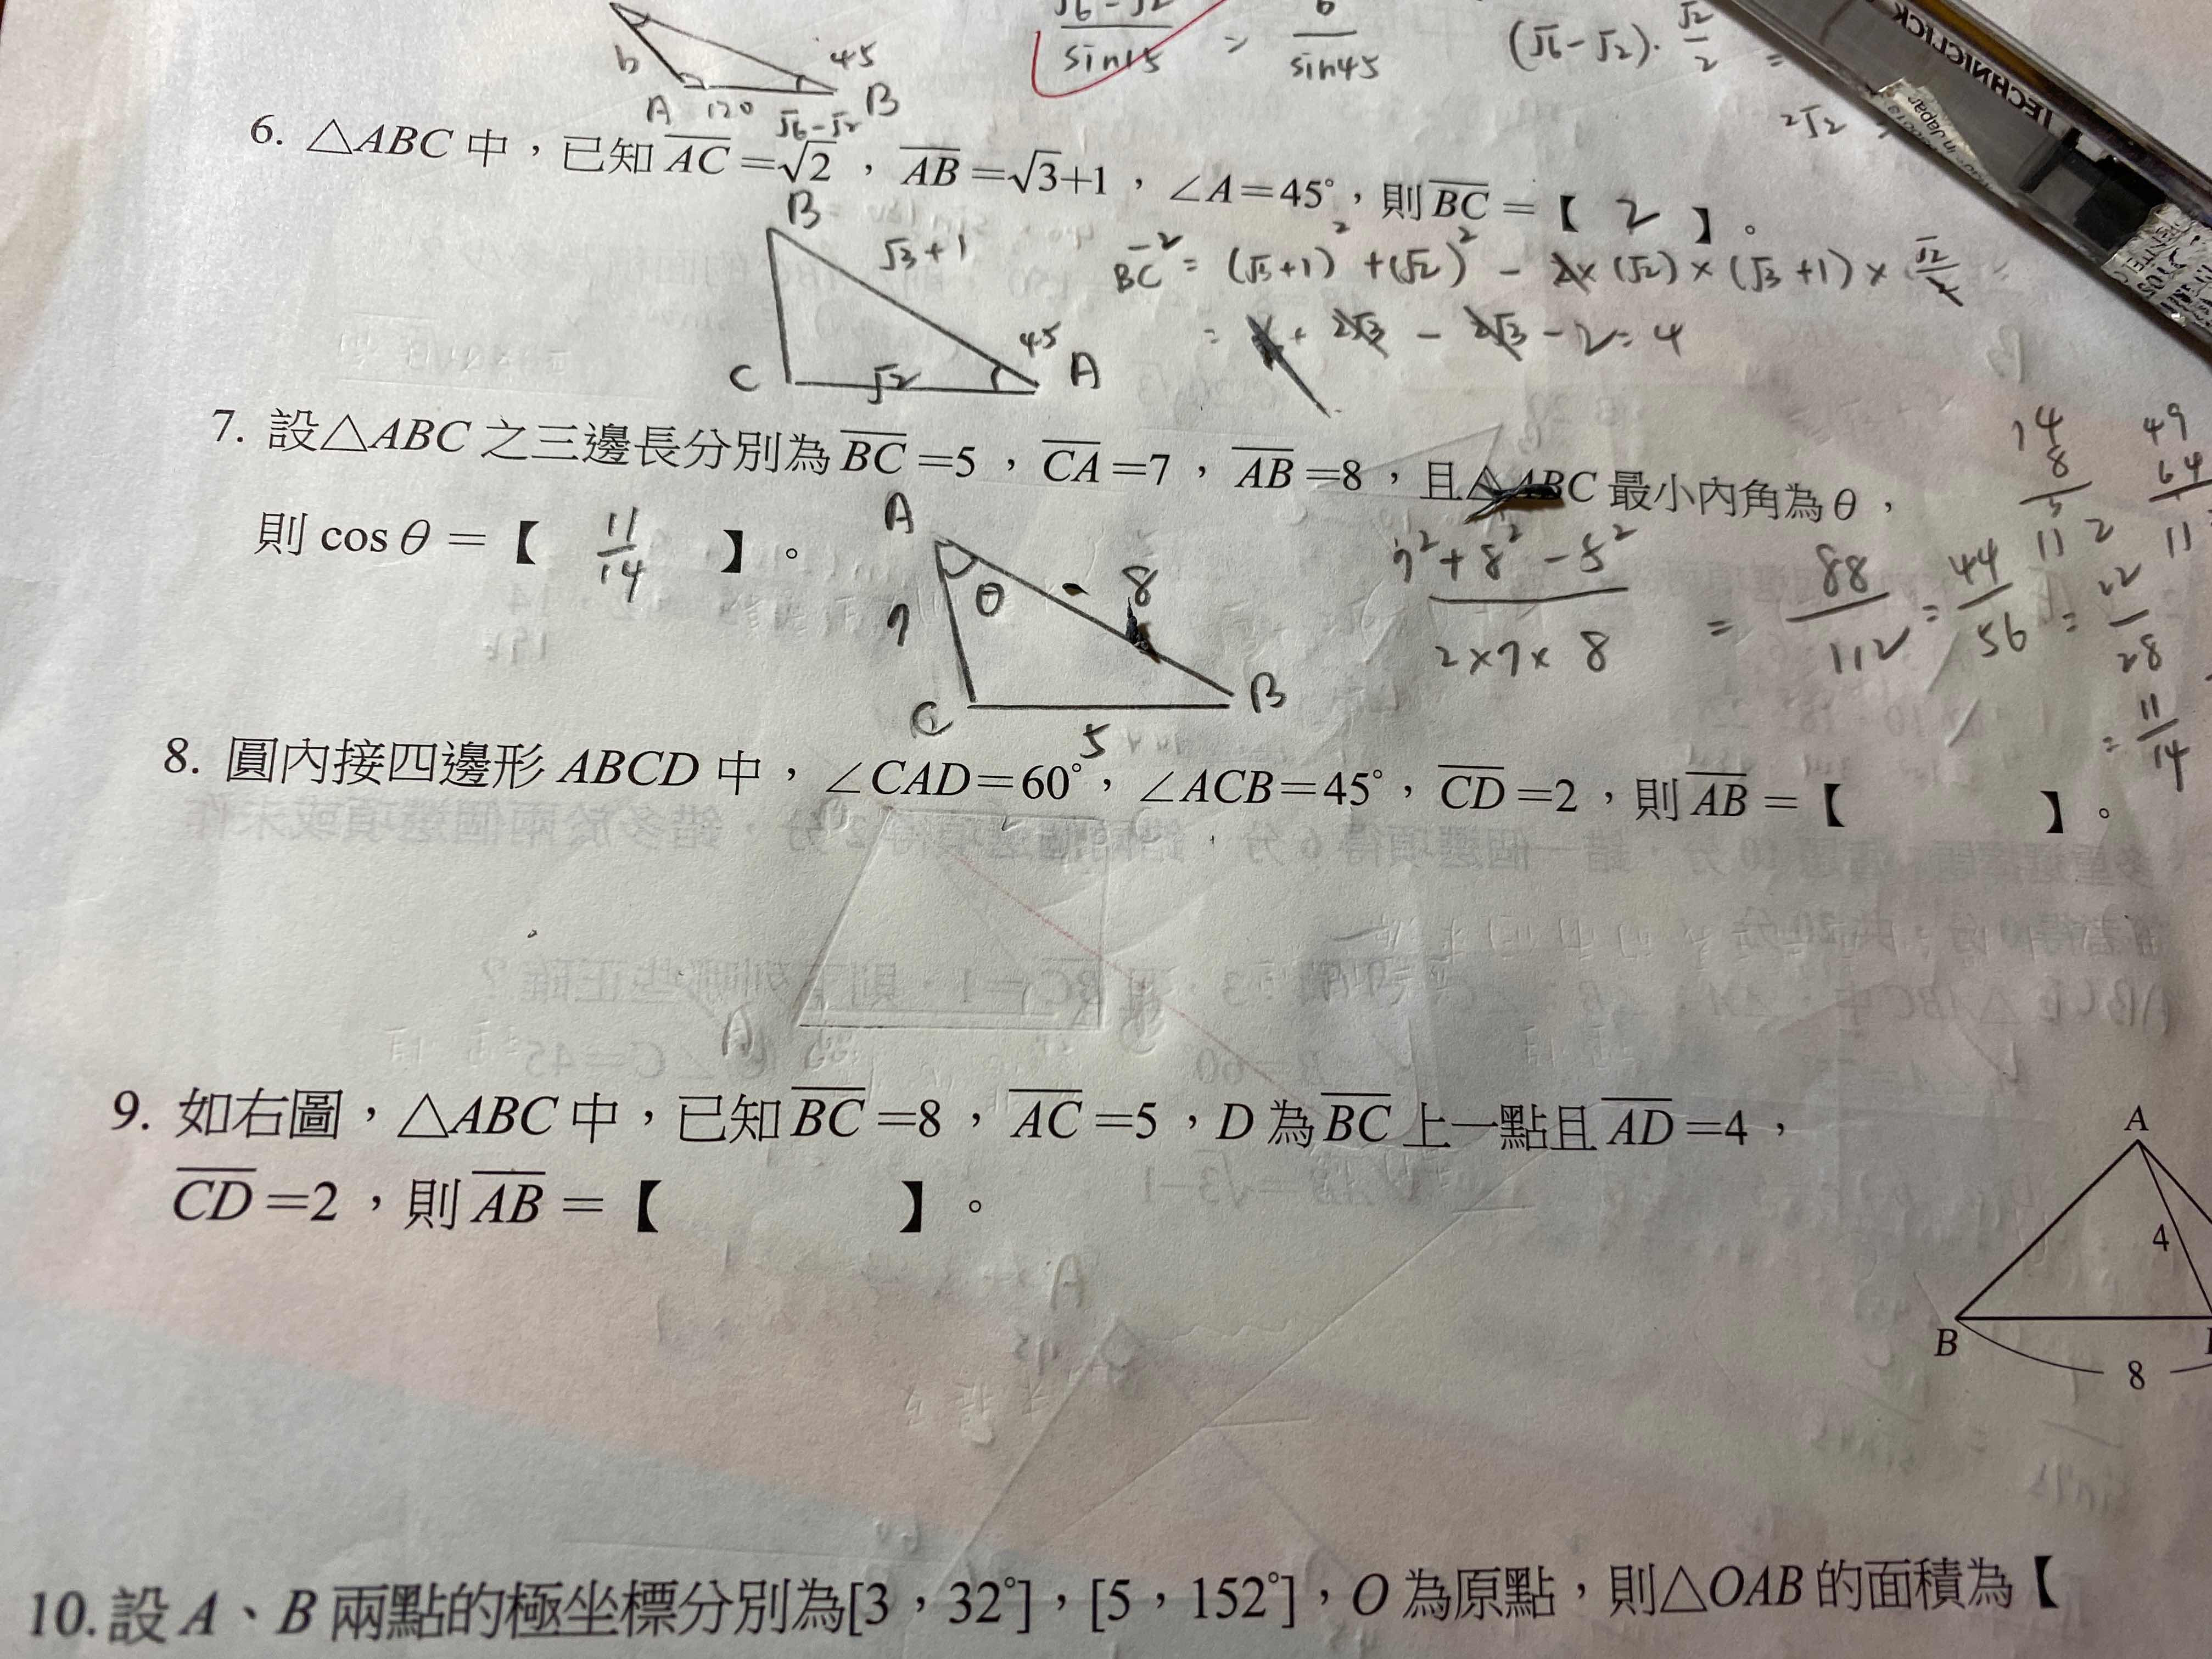 b
45
A 120 B
√6-√2
√6-√2/sin15 = b/sin45
(√6-√2)·√2/2 =
2√2
TECHNICLICK
Japan
6. △ABC 中，已知 AC=√2，AB=√3+1，∠A=45°，則 BC=【 2 】。
B
√3+1
45
C √2 A
BC² = (√3+1)² + (√2)² - 2×(√2)×(√3+1)×√2/2 =
+ 2√3 - 2√3 - 2 = 4
7. 設△ABC 之三邊長分別為 BC=5，CA=7，AB=8，且△ABC 最小內角為θ，
則 cosθ=【 11/14 】。
A
θ
7
8
C 5 B
7²+8²-5²/2×7×8 = 88/112 = 44/56 = 22/28
= 11/14
14
8
112
49
64
11
8. 圓內接四邊形 ABCD 中，∠CAD=60°，∠ACB=45°，CD=2，則 AB=【 】。
9. 如右圖，△ABC 中，已知 BC=8，AC=5，D 為 BC 上一點且 AD=4，
CD=2，則 AB=【 】。
A
4
B
8
10. 設 A、B 兩點的極坐標分別為[3，32°]，[5，152°]，O 為原點，則△OAB 的面積為【